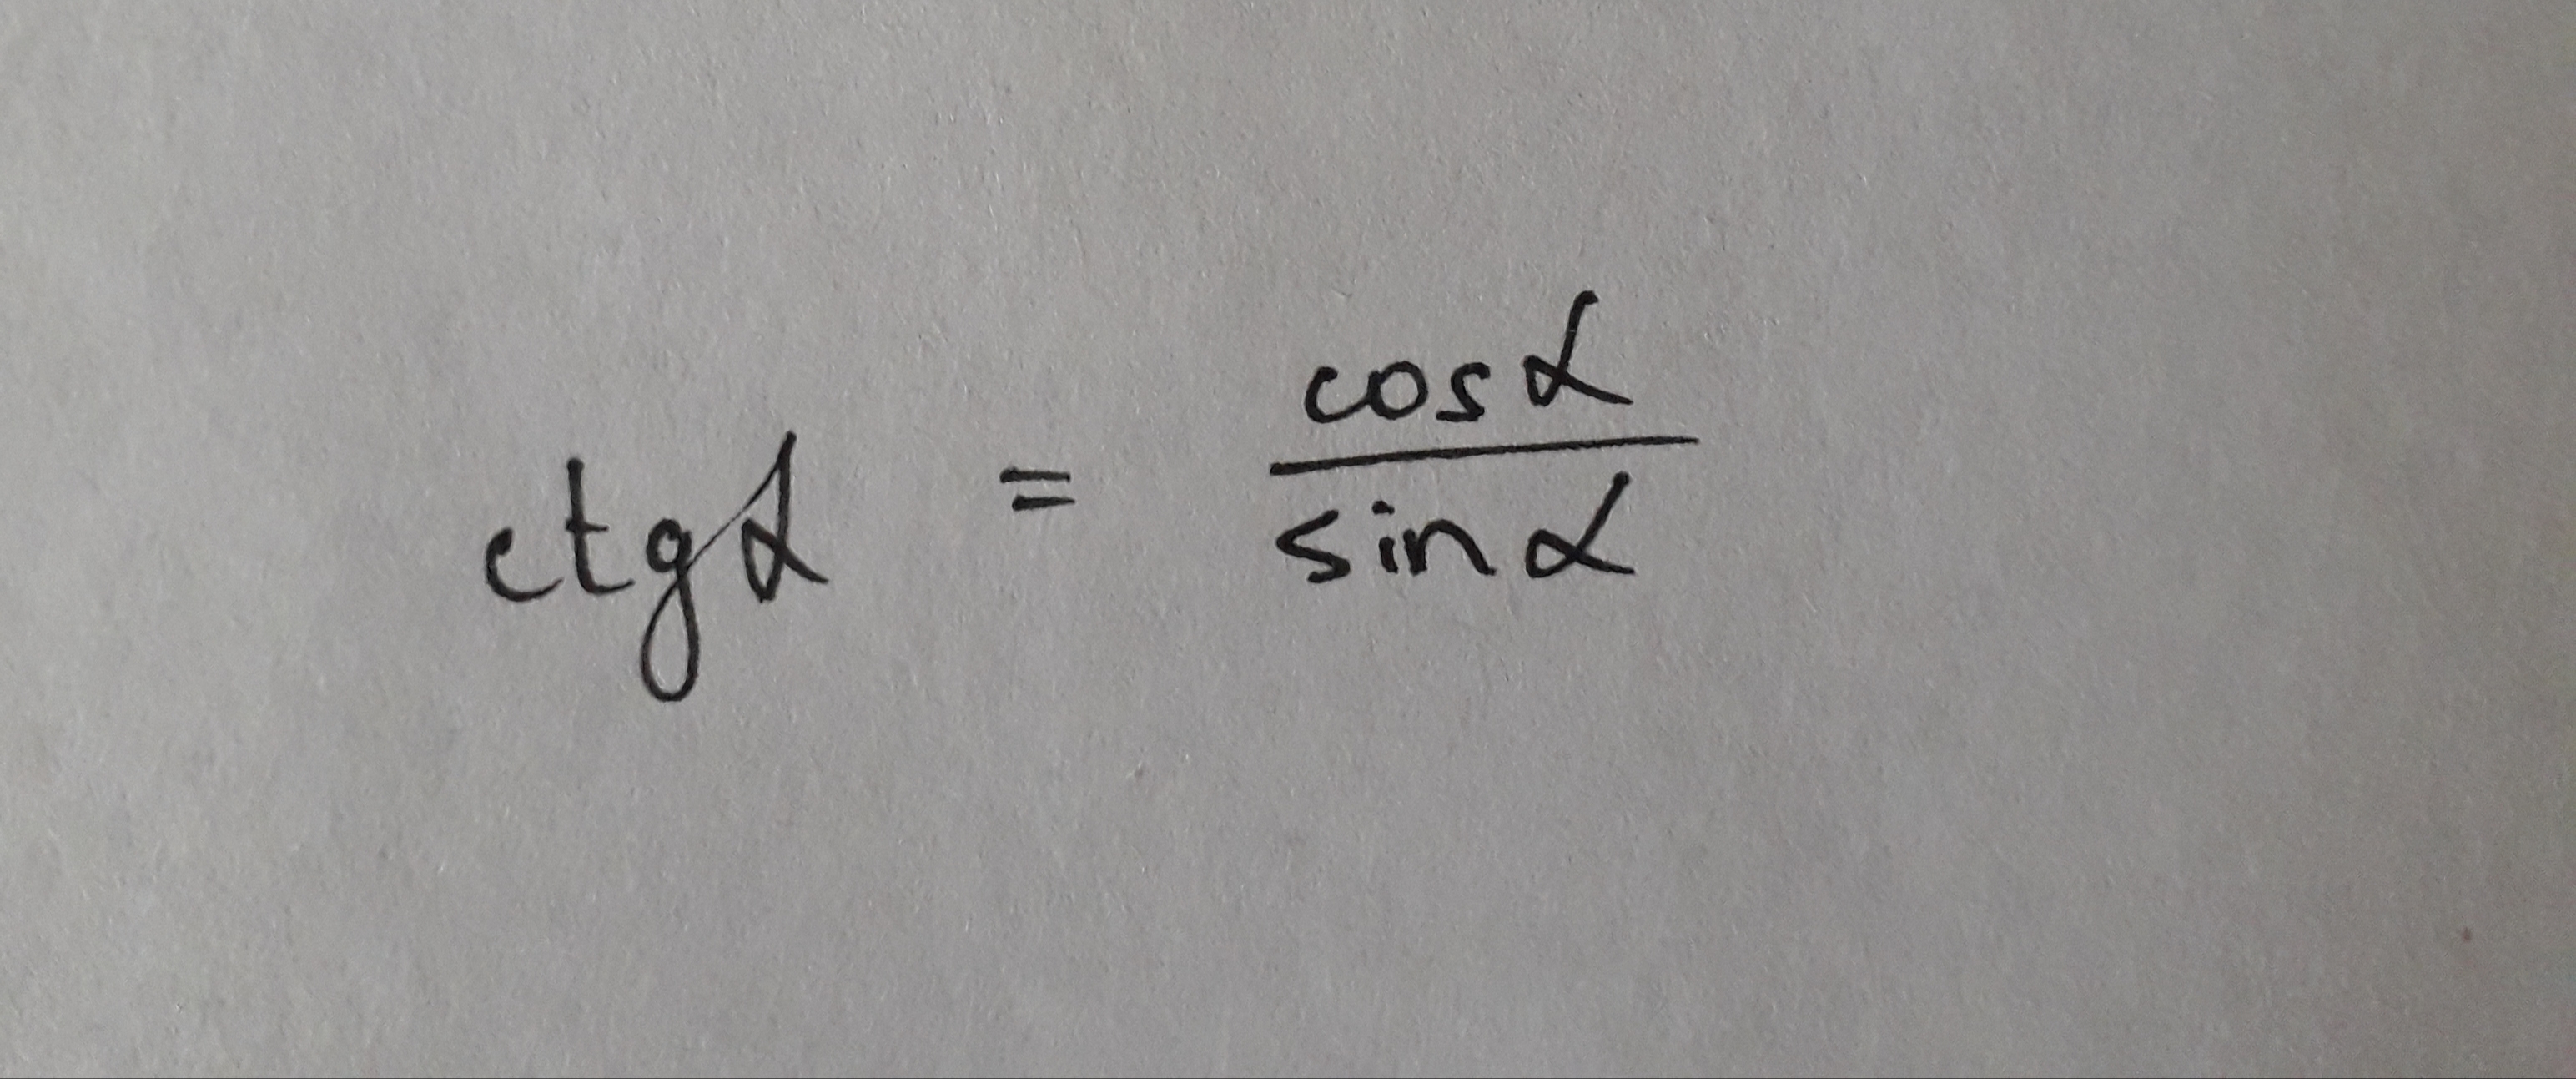 ctg α = cos α / sin α